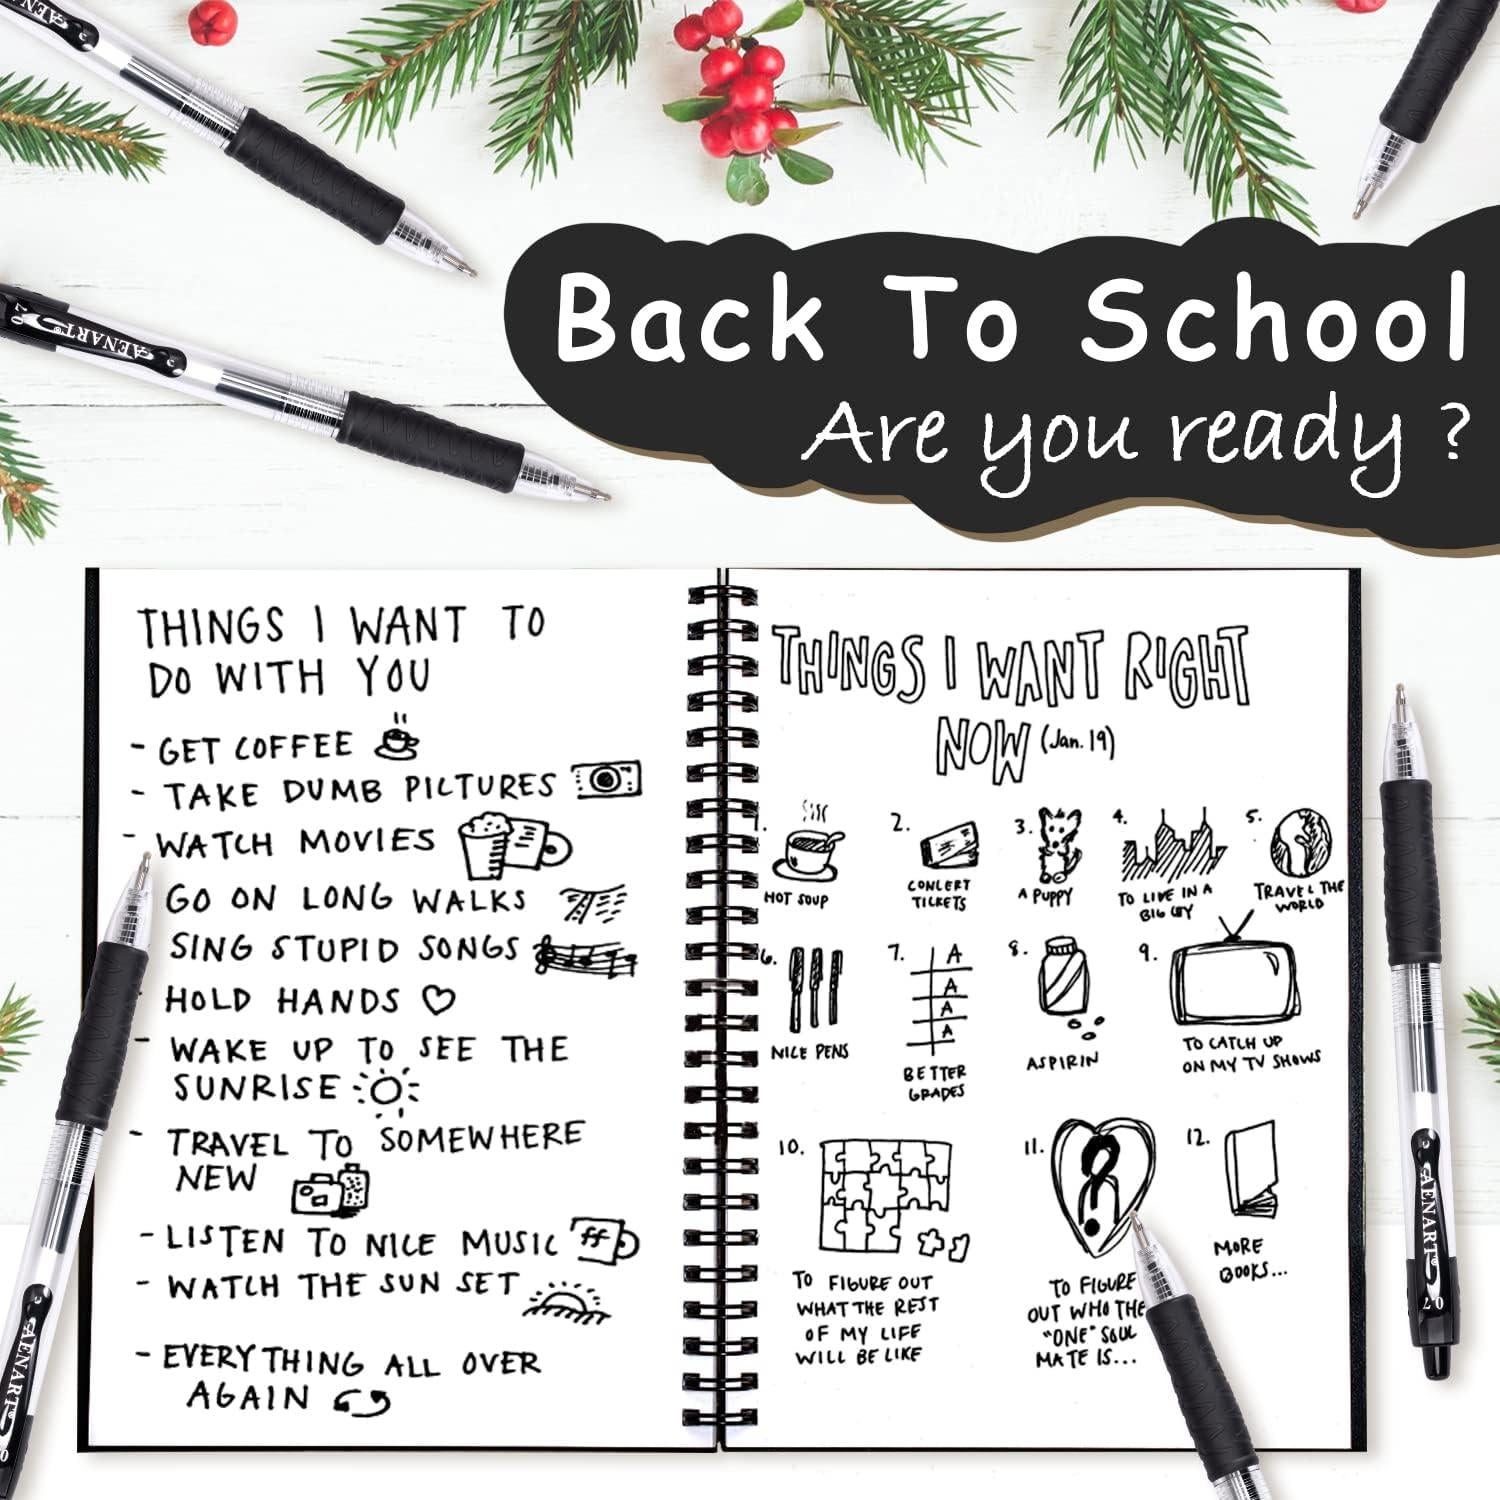 Back To School
Are you ready ?
AENART
0.7
THINGS I WANT TO
DO WITH YOU
- GET COFFEE
- TAKE DUMB PICTURES
- WATCH MOVIES
GO ON LONG WALKS
SING STUPID SONGS
HOLD HANDS
- WAKE UP TO SEE THE
SUNRISE
- TRAVEL TO SOMEWHERE
NEW
- LISTEN TO NICE MUSIC
ff
- WATCH THE SUN SET
- EVERYTHING ALL OVER
AGAIN
THINGS I WANT RIGHT
NOW (Jan. 19)
1. HOT SOUP
2. CONCERT
TICKETS
3. A PUPPY
4. TO LIVE IN A
BIG CITY
5. TRAVEL THE
WORLD
6. NICE PENS
7. A
A
A
A
BETTER
GRADES
8. ASPIRIN
9. TO CATCH UP
ON MY TV SHOWS
10. TO FIGURE OUT
WHAT THE REST
OF MY LIFE
WILL BE LIKE
11. ?
TO FIGURE
OUT WHO THE
"ONE" SOUL
MATE IS...
12. MORE
BOOKS...
AENART
0.7
AENART
0